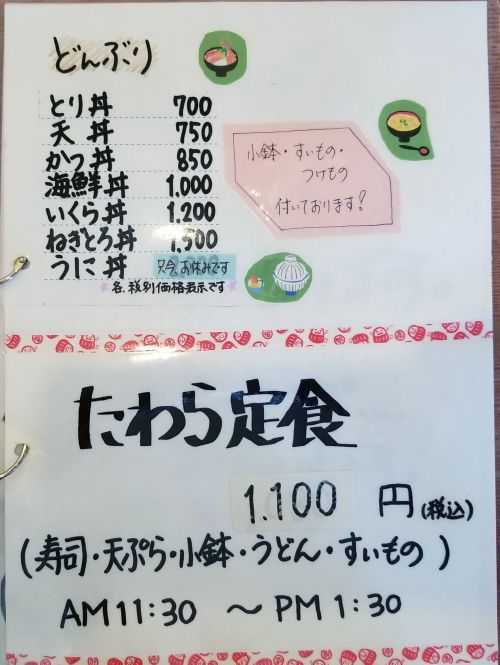 どんぶり
とり丼 700
天丼 750
かつ丼 850
海鮮丼 1.000
いくら丼 1.200
ねぎとろ丼 1,500
うに丼 只今、お休みです
各、税別価格表示です
小鉢・すいもの・
つけもの
付いております!
たわら定食
1.100 円(税込)
(寿司・天ぷら・小鉢・うどん・すいもの)
AM 11:30 ～ PM 1:30